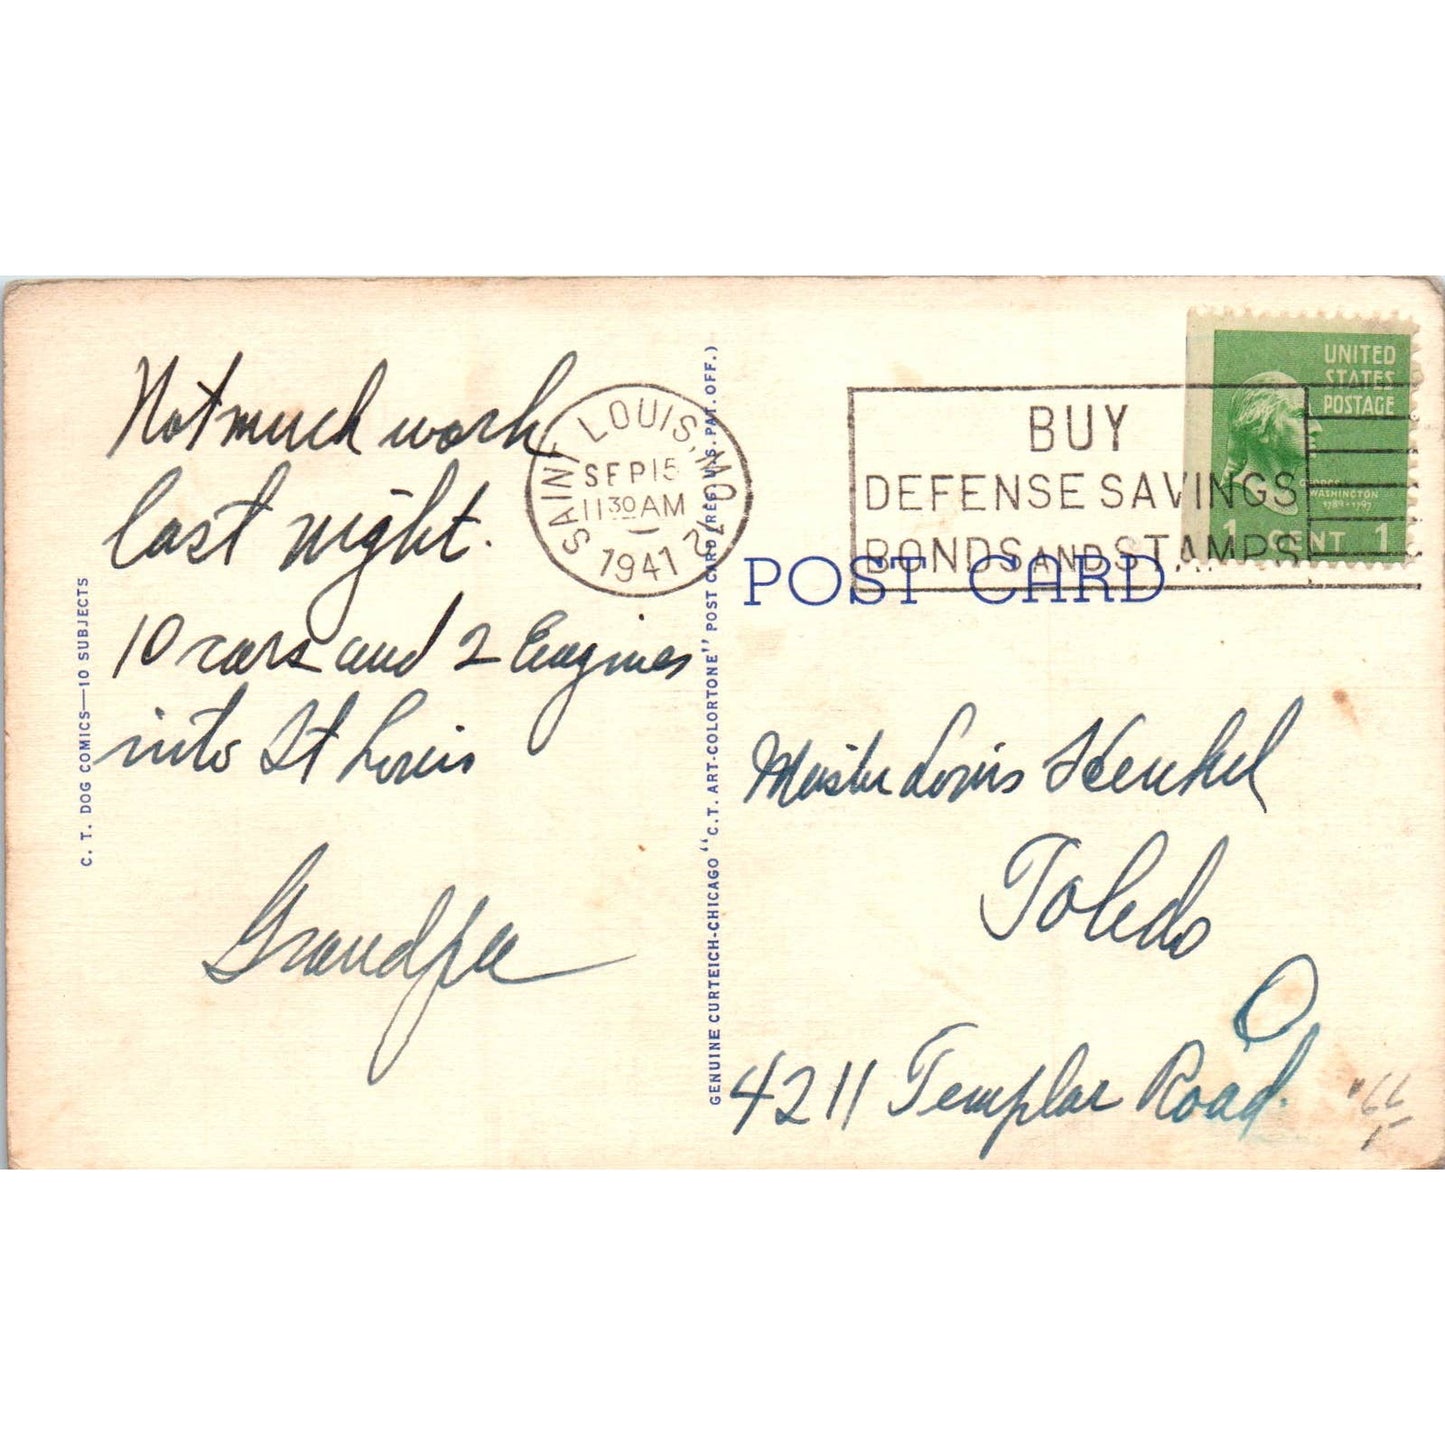 Not much work
last night.
10 cars and 2 Engines
into St Louis
Grandpa
C. T. DOG COMICS—10 SUBJECTS
GENUINE CURTEICH-CHICAGO "C.T. ART-COLORTONE" POST CARD (REG. U.S. PAT. OFF.)
SAINT LOUIS, MO. 2
SEP 15
11 30 AM
1941
BUY
DEFENSE SAVINGS
BONDS AND STAMPS
UNITED
STATES
POSTAGE
GEORGE
WASHINGTON
1789·1797
1 CENT 1
POST CARD
Master Louis Henkel
Toledo
O
4211 Templar Road.